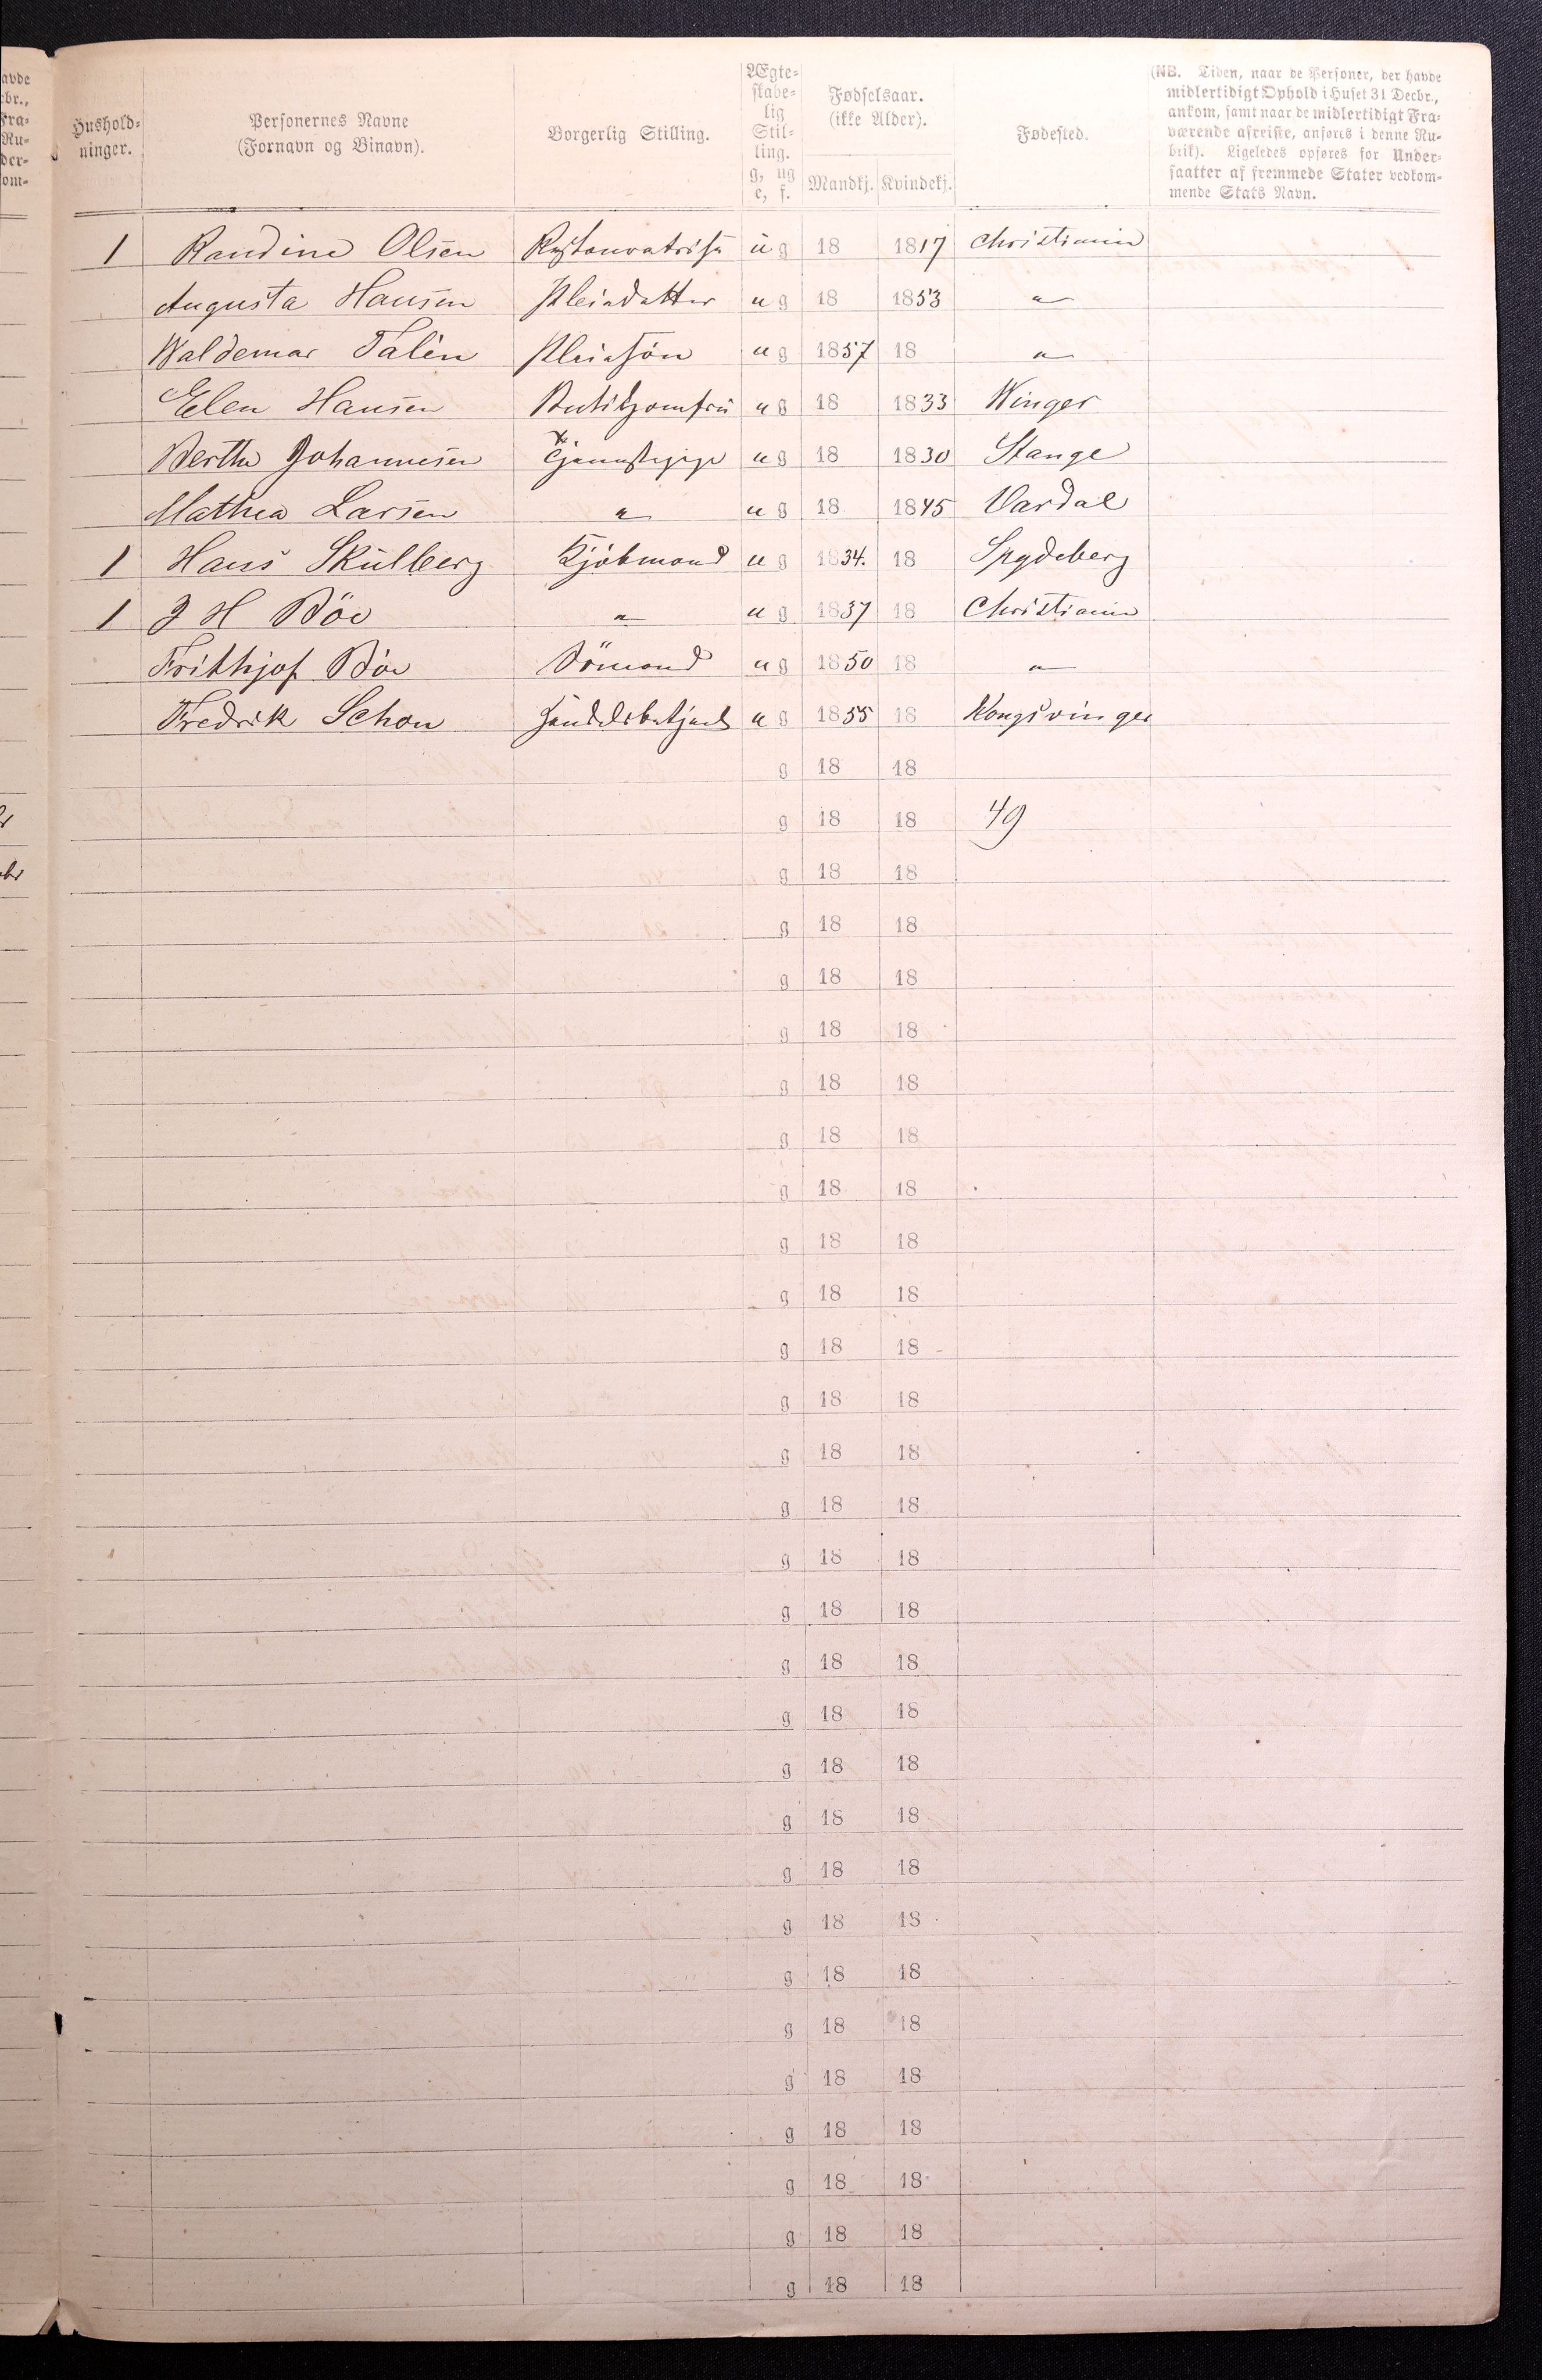 Hushold-
ninger.
Personernes Navne
(Fornavn og Binavn).
Borgerlig Stilling.
Ægte-
skabe-
lig
Stil-
ling.
g, ug
e, f.
Fødselsaar.
(ikke Alder).
Mandkj. Kvindekj.
Fødested.
(NB. Tiden, naar de Personer, der havde
midlertidigt Ophold i Huset 31 Decbr.,
ankom, samt naar de midlertidigt Fra-
værende afreiste, anføres i denne Ru-
brik). Ligeledes opføres for Under-
saatter af fremmede Stater vedkom-
mende Stats Navn.
1 Randine Olsen Restauratrise ug 18 1817 Christiania
Augusta Hansen Pleiedatter ug 18 1853 "
Waldemar Talén Pleiesön ug 1857 18 "
Elen Hansen Butikjomfru ug 18 1833 Winger
Berthe Johannesen Tjenestepige ug 18 1830 Stange
Mathea Larsen " ug 18 1845 Vardal
1 Hans Skulberg Kjöbmand ug 1834. 18 Spydeberg
1 J H Böe " ug 1837 18 Christiania
Frithjof Böe Sömand ug 1850 18 "
Fredrik Schou Handelsbetjent ug 1855 18 Kongsvinger
g 18 18
g 18 18 49
g 18 18
g 18 18
g 18 18
g 18 18
g 18 18
g 18 18
g 18 18
g 18 18
g 18 18
g 18 18
g 18 18
g 18 18
g 18 18
g 18 18
g 18 18
g 18 18
g 18 18
g 18 18
g 18 18
g 18 18
g 18 18
g 18 18
g 18 18
g 18 18
g 18 18
g 18 18
g 18 18
g 18 18